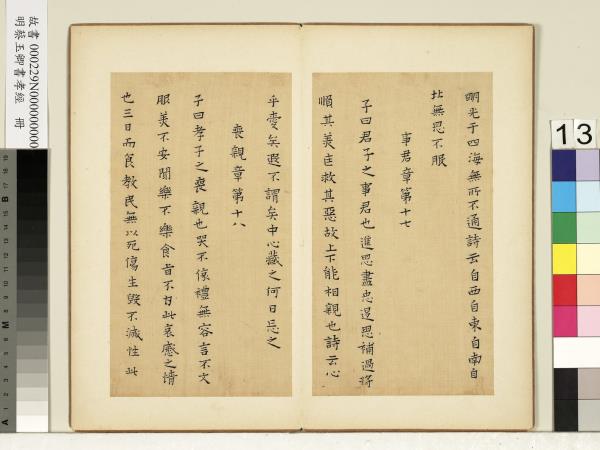 明光于四海無所不通詩云自西自東自南自
北無思不服
事君章第十七
子曰君子之事君也進思盡忠退思補過將
順其美匡救其惡故上下能相親也詩云心
乎愛矣遐不謂矣中心藏之何日忘之
喪親章第十八
子曰孝子之喪親也哭不偯禮無容言不文
服美不安聞樂不樂食旨不甘此哀慼之情
也三日而食教民無以死傷生毀不滅性此
故書 000229N000000000
明蔡玉卿書孝經 冊
13